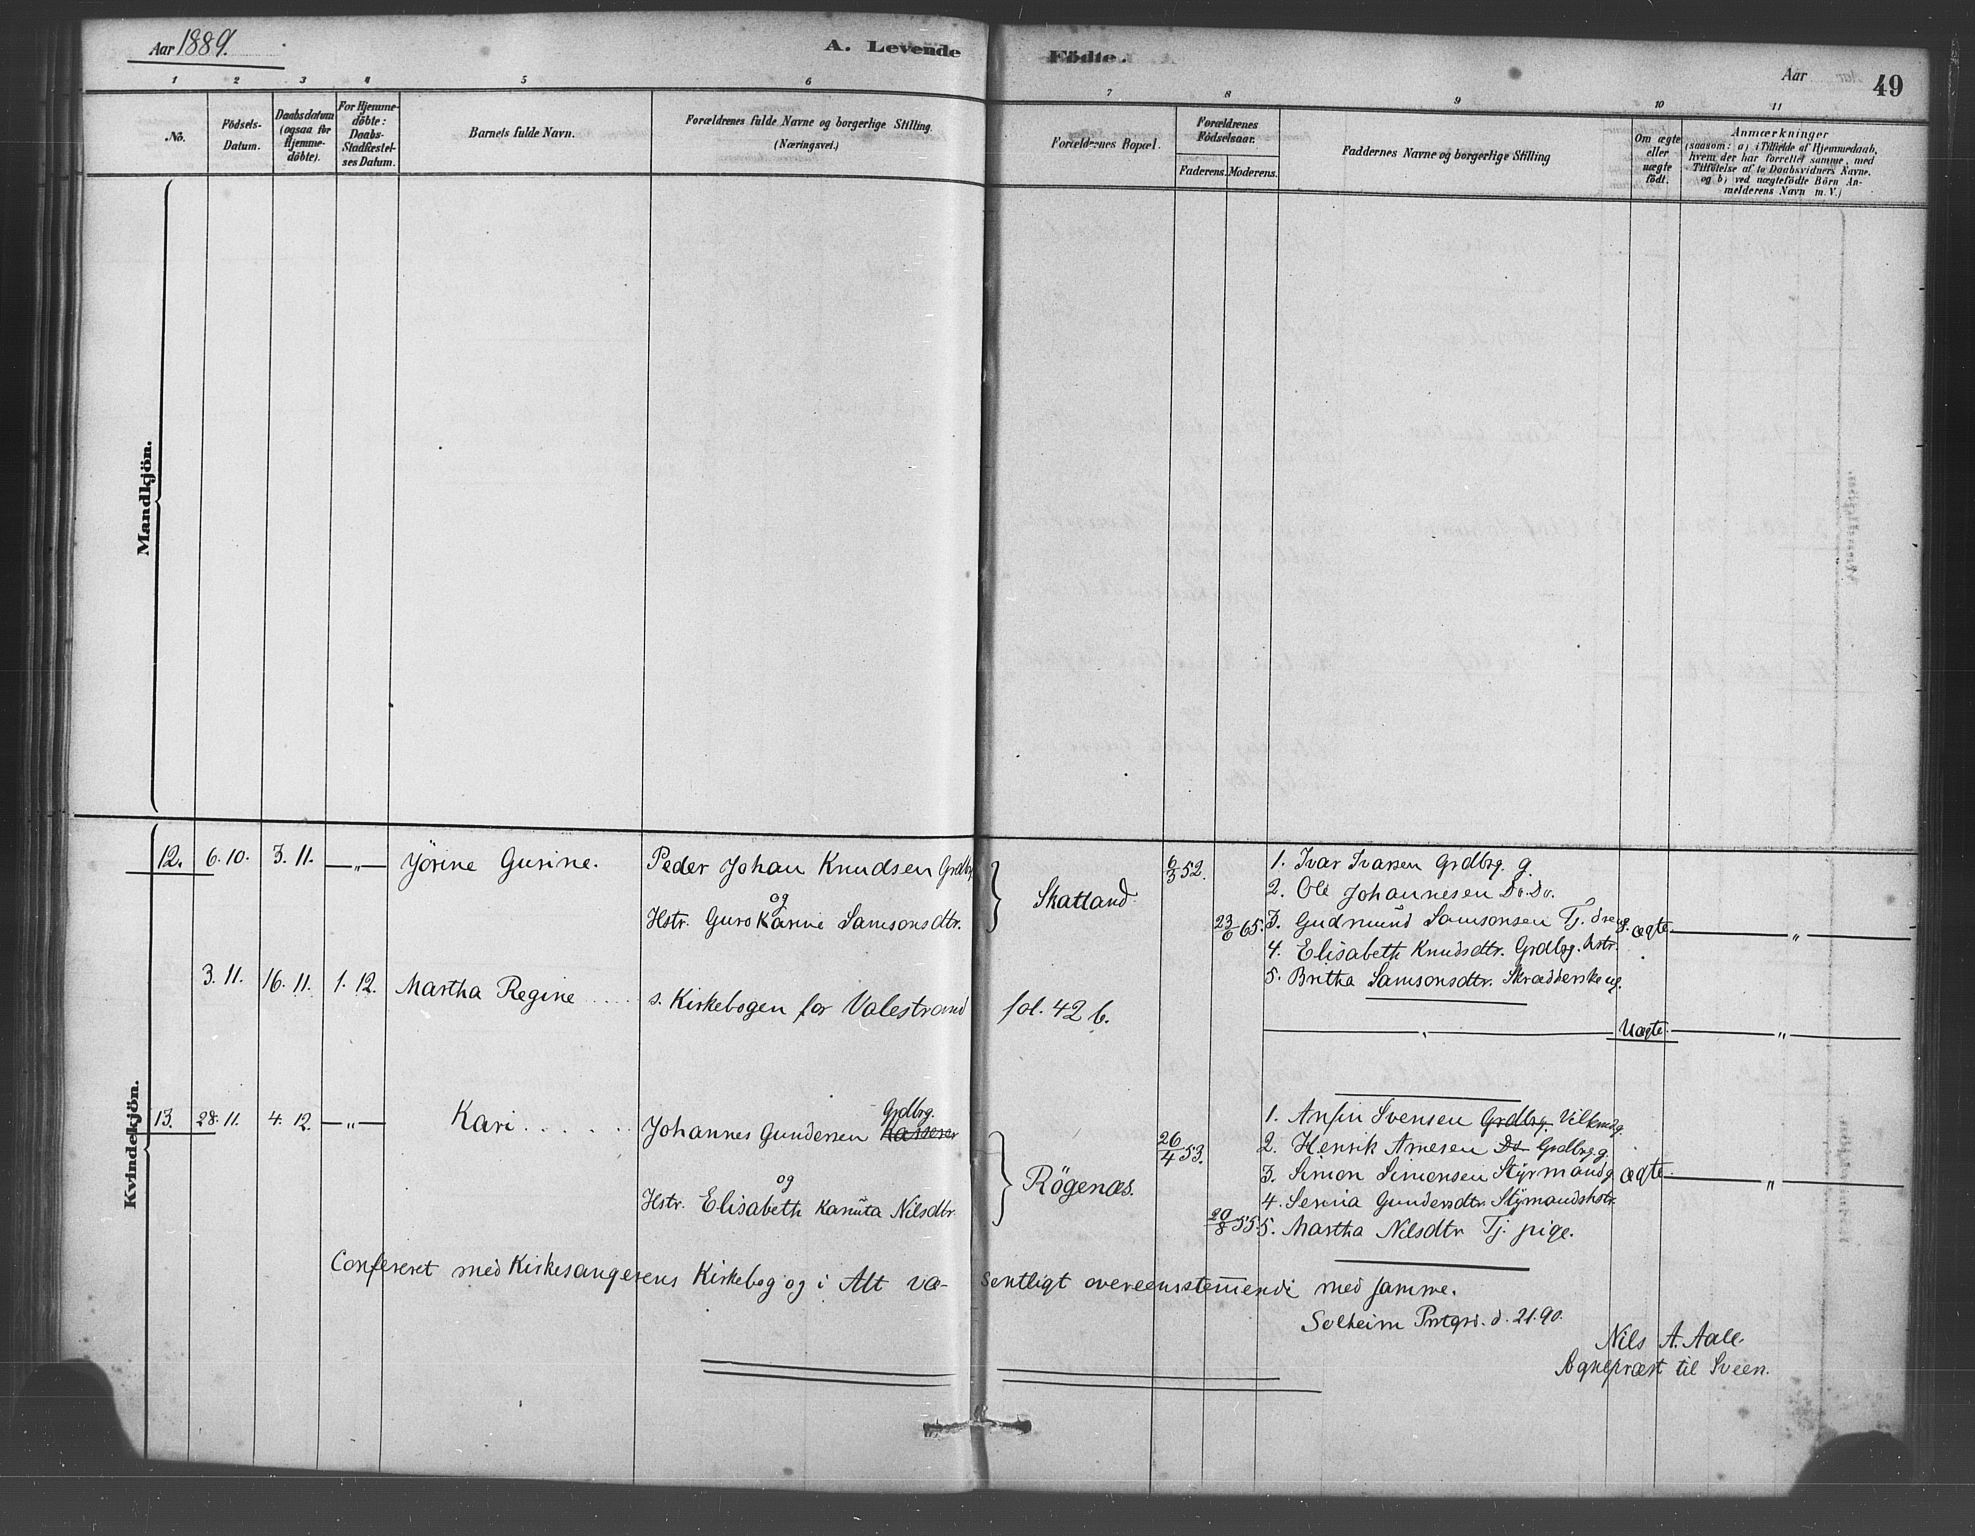 Aar 1889.
A. Levende
Födte.
Aar
49
1 2 3 4 5 6 7 8 9 10 11
No.
Födsels-
Datum.
Daabsdatum
(ogsaa for
Hjemme-
döbte).
For Hjemme-
döbte:
Daabs-
Stadfæstel-
ses Datum.
Barnets fulde Navn.
Forældrenes fulde Navne og borgerlige Stilling.
(Næringsvei.)
Forældrenes Bopæl.
Forældrenes
Födselsaar.
Faderens. Moderens.
Faddernes Navne og borgerlige Stilling
Om ægte
eller
uægte
födt.
Anmærkninger
(saasom: a) i Tilfælde af Hjemmedaab,
hvem der har forrettet samme, med
Tilföielse af to Daabsvidners Navne.
og b) ved uægtefödte Börn An-
melderens Navn m. V.)
Mandkjön.
Kvindekjön.
12. 6. 10. 3. 11. —„— Jörine Gurine. Peder Johan Knudsen Grdbr.
og
Hstr. Guro Karine Samsonsdtr.
Skatland
6/3 52.
23/6 65.
1. Ivar Ivarsen Grdbrg. g.
2. Ole Johannesen Do. Do.
3. Gudmund Samsonsen Tj. dreng.
4. Elisabeth Knudsdtr. Grdbrg. hstr.
5. Britha Samsonsdtr. Skrædderske ug.
ægte — „ —
3. 11. 16. 11. 1. 12. Martha Regine . . . . s. Kirkebogen for Valestrand fol. 42 b.
— „ — Uægte. — „ —
13. 28. 11. 4. 12. —„— Kari . . . . . . Johannes Gundersen Grdbrg.
og
Hstr. Elisabeth Kanuta Nilsdtr.
Rögenæs.
26/4 53.
20/8 55.
1. Anfin Svensen Grdbrg.
2. Henrik Arnesen Do Grdbrg. g.
3. Simon Simonsen Styrmand g.
4. Serina Gundersdtr. Styrmandshstr.
5. Martha Nilsdtr Tj. pige.
ægte — „ —
Confereret med Kirkesangerens Kirkebog og i Alt væ- sentligt overeensstemende med samme.
Solheim Prstgrd. d. 2 1. 90.
Nils A. Aale.
Sognepræst til Sveen.